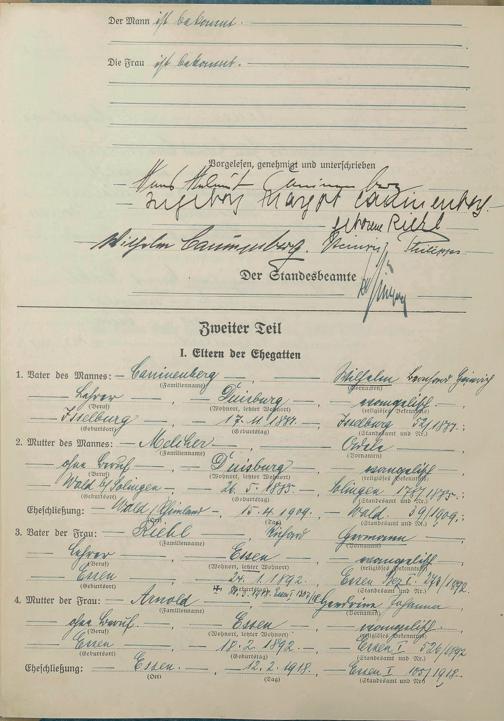 Der Mann ist bekannt.
Die Frau ist bekannt.
Vorgelesen, genehmigt und unterschrieben
Hans Helmut Canünenberg
Ingeborg Margot Canünenberg
geborene Riehl
Wilhelm Canünenberg. Heinrich Philipps
Der Standesbeamte
Zweiter Teil
I. Eltern der Ehegatten
1. Vater des Mannes: — Caninenberg — , Wilhelm Bernhard Heinrich
(Familienname) (Vornamen)
— Lehrer — , — Duisburg — , — evangelisch
(Beruf) (Wohnort, letzter Wohnort) (religiöses Bekenntnis)
Isselburg — , — 17.11. — , — Isselburg
(Geburtsort) (Geburtstag) (Standesamt und Nr.)
2. Mutter des Mannes: — Melcher — , — Adele
(Familienname) (Vornamen)
— ohne Beruf — , — Duisburg — , — evangelisch
(Beruf) (Wohnort, letzter Wohnort) (religiöses Bekenntnis)
Wald b/Solingen — , — 26.5.1885 — , — Solingen
(Geburtsort) (Geburtstag) (Standesamt und Nr.)
Eheschließung: — Wald/Rheinland — , — 15.4.1909. — , — Wald. 39/1909.;
(Ort) (Tag) (Standesamt und Nr.)
3. Vater der Frau: — Riehl — , Richard Hermann
(Familienname) (Vornamen)
— Lehrer — , — Essen — , — evangelisch
(Beruf) (Wohnort, letzter Wohnort) (religiöses Bekenntnis)
Essen — , — 24.1.1892. — , — Essen
(Geburtsort) (Geburtstag) (Standesamt und Nr.)
4. Mutter der Frau: — Arnold — , Johanna
(Familienname) (Vornamen)
— ohne Beruf. — , — Essen — , — evangelisch
(Beruf) (Wohnort, letzter Wohnort) (religiöses Bekenntnis)
Essen — , — 18.2.1892. — , — Essen I 526/1892
(Geburtsort) (Geburtstag) (Standesamt und Nr.)
Eheschließung: — Essen. — , — 12.2.1918. — , — Essen I 105/1918.
(Ort) (Tag) (Standesamt und Nr.)